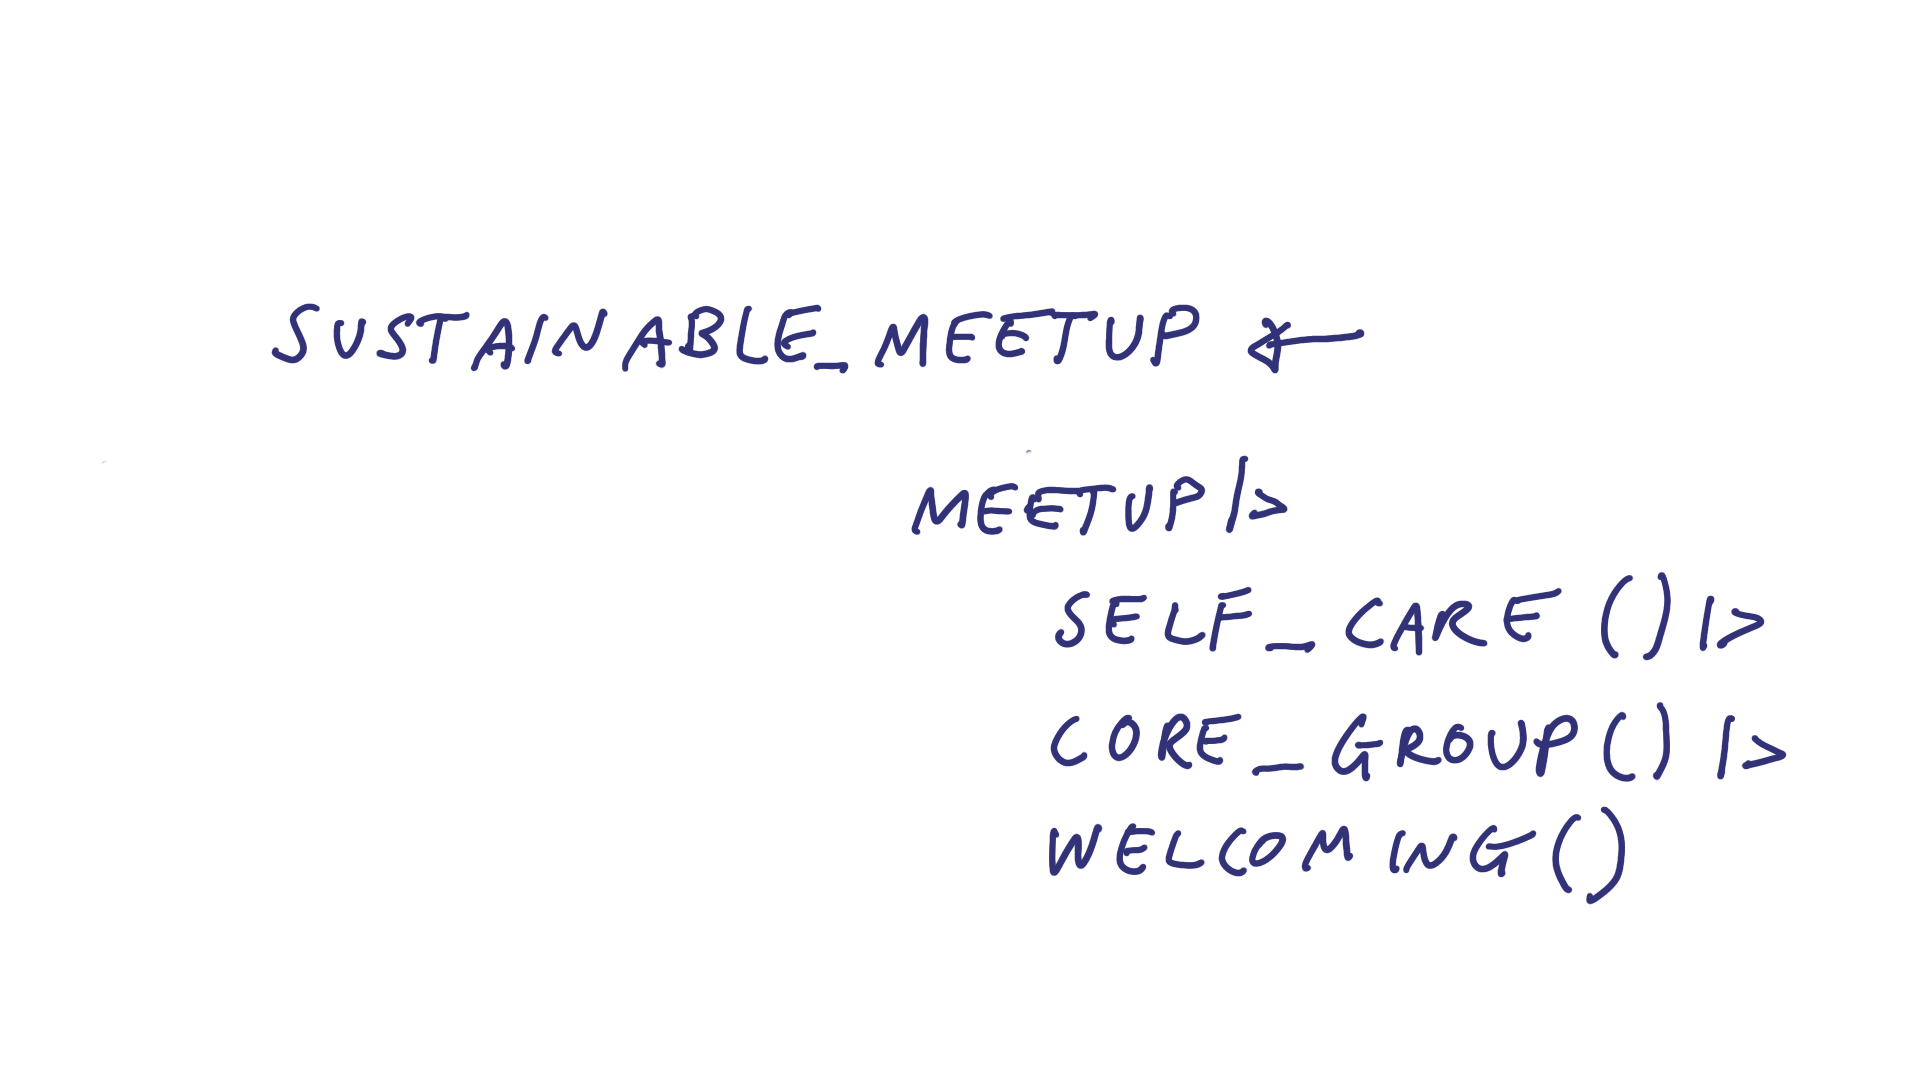 SUSTAINABLE_MEETUP <-
MEETUP |>
SELF_CARE () |>
CORE_GROUP () |>
WELCOMING ()